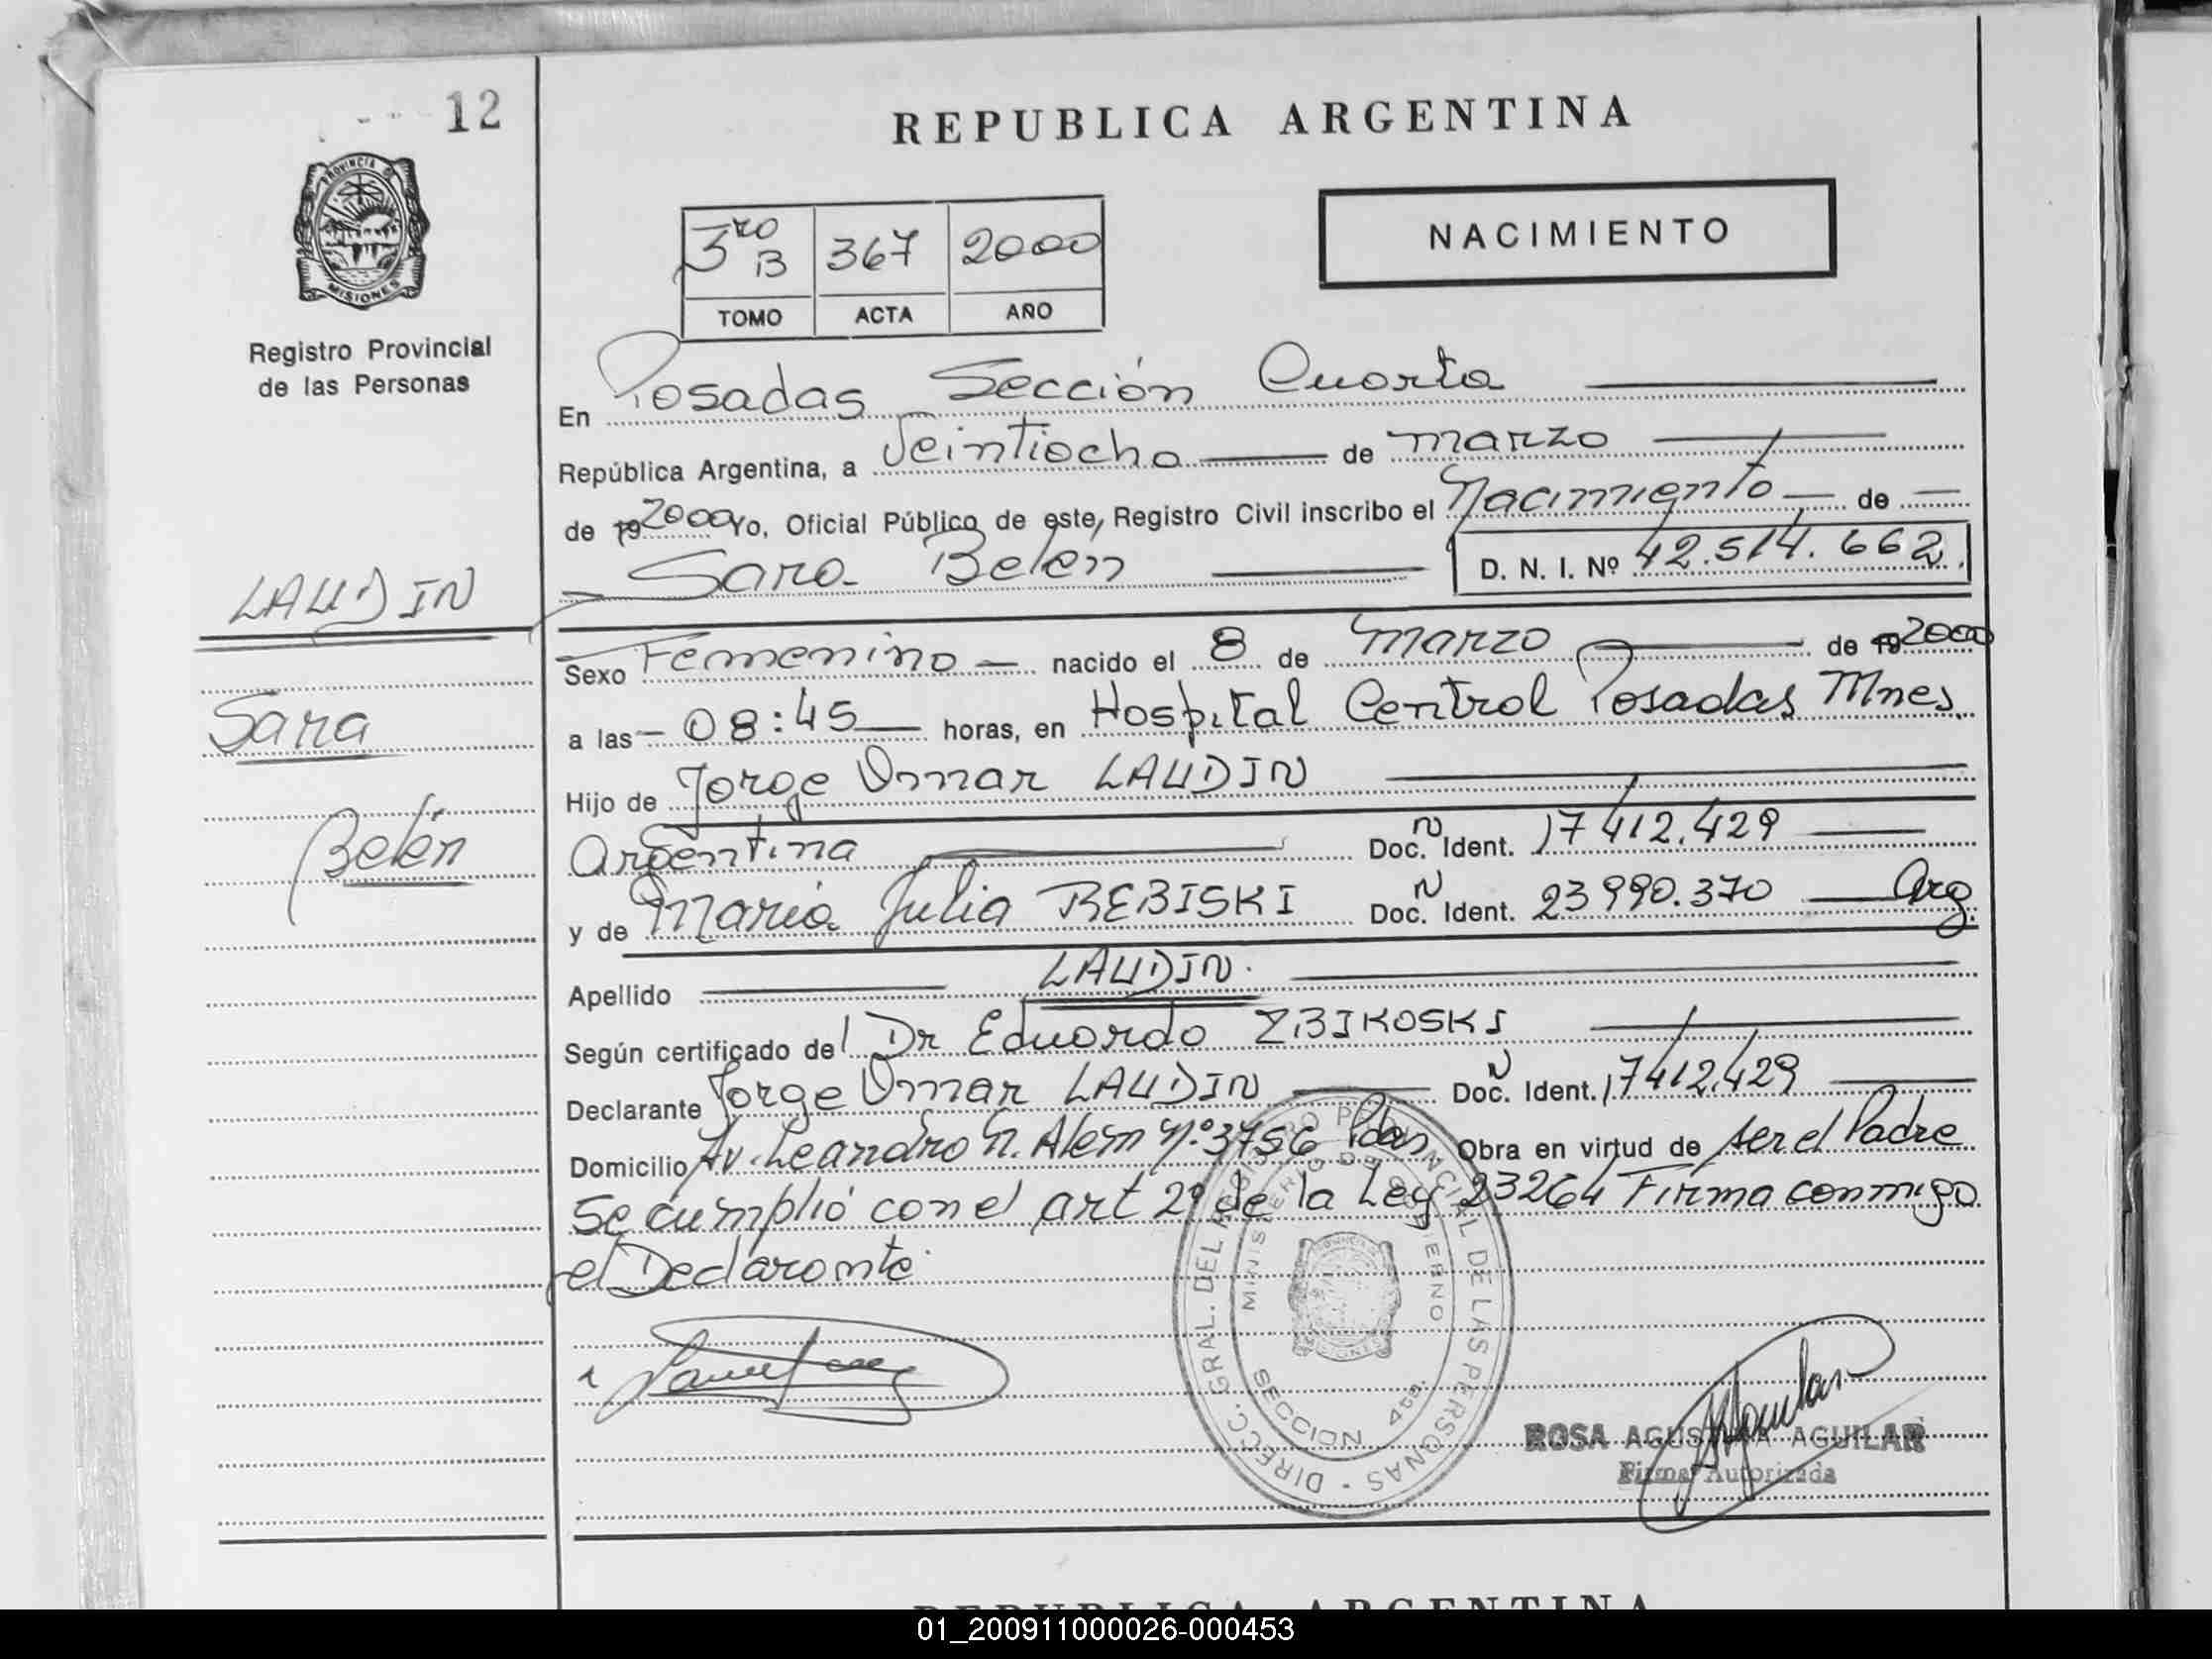 12
PROVINCIA DE
MISIONES
Registro Provincial
de las Personas
LAUDIN
Sara
Belén
REPUBLICA ARGENTINA
3ro B 367 2000
TOMO ACTA AÑO
NACIMIENTO
En Posadas Sección Cuarta
República Argentina, a Veintiocho de marzo
de 19 2000 Yo, Oficial Público de este Registro Civil inscribo el Nacimiento de
Sara Belén D. N. I. Nº 42.514.662
Sexo Femenino nacido el 8 de marzo de 19 2000
a las 08:45 horas, en Hospital Central Posadas Mnes
Hijo de Jorge Omar LAUDIN
Argentina Doc. N Ident. 17412.429
y de María Julia REBISKI Doc. N Ident. 23990.370 Arg.
Apellido LAUDIN.
Según certificado del Dr Eduardo ZBIKOSKI
Declarante Jorge Omar LAUDIN Doc. N Ident. 17412.429
Domicilio Av. Leandro N. Alem Nº 3756 Pdas Obra en virtud de ser el Padre
Se cumplió con el art 2º de la Ley 23264 Firma conmigo
el Declarante.
DIRECC. GRAL. DEL REGISTRO PROVINCIAL DE LAS PERSONAS
MINISTERIO DE GOBIERNO
SECCION 4ta.
ROSA AGUSTINA AGUILAR
Firma Autorizada
REPUBLICA ARGENTINA
01_200911000026-000453